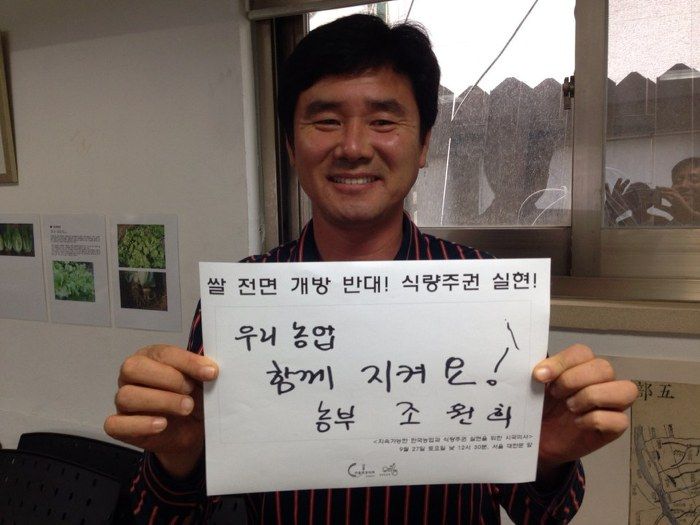 쌀 전면 개방 반대! 식량주권 실현!
우리 농업
함께 지켜요!
농부 조원희
<지속가능한 한국농업과 식량주권 실현을 위한 시국미사>
9월 27일 토요일 낮 12시 30분, 서울 대한문 앞
五部